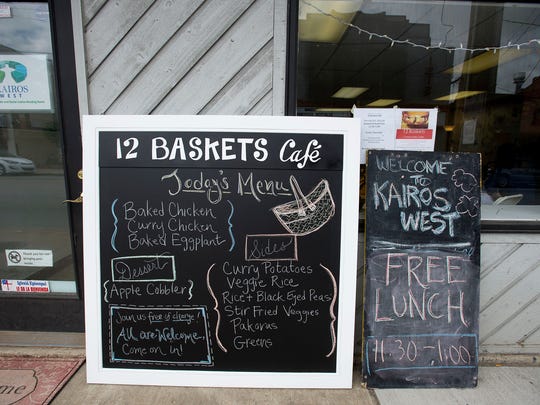 KAIROS
WEST
12 BASKETS Café
Today's Menu
Baked Chicken
Curry Chicken
Baked Eggplant
Dessert
Apple Cobbler
Join us free of charge!
All are Welcome,
Come on in!
Sides
Curry Potatoes
Veggie Rice
Rice + Black Eyed Peas
Stir Fried Veggies
Pakoras
Greens
12 Baskets
WELCOME
TO
KAIROS
WEST
FREE
LUNCH
11:30-1:00
Iglesia Episcopal
LE DA LA BIENVENIDA